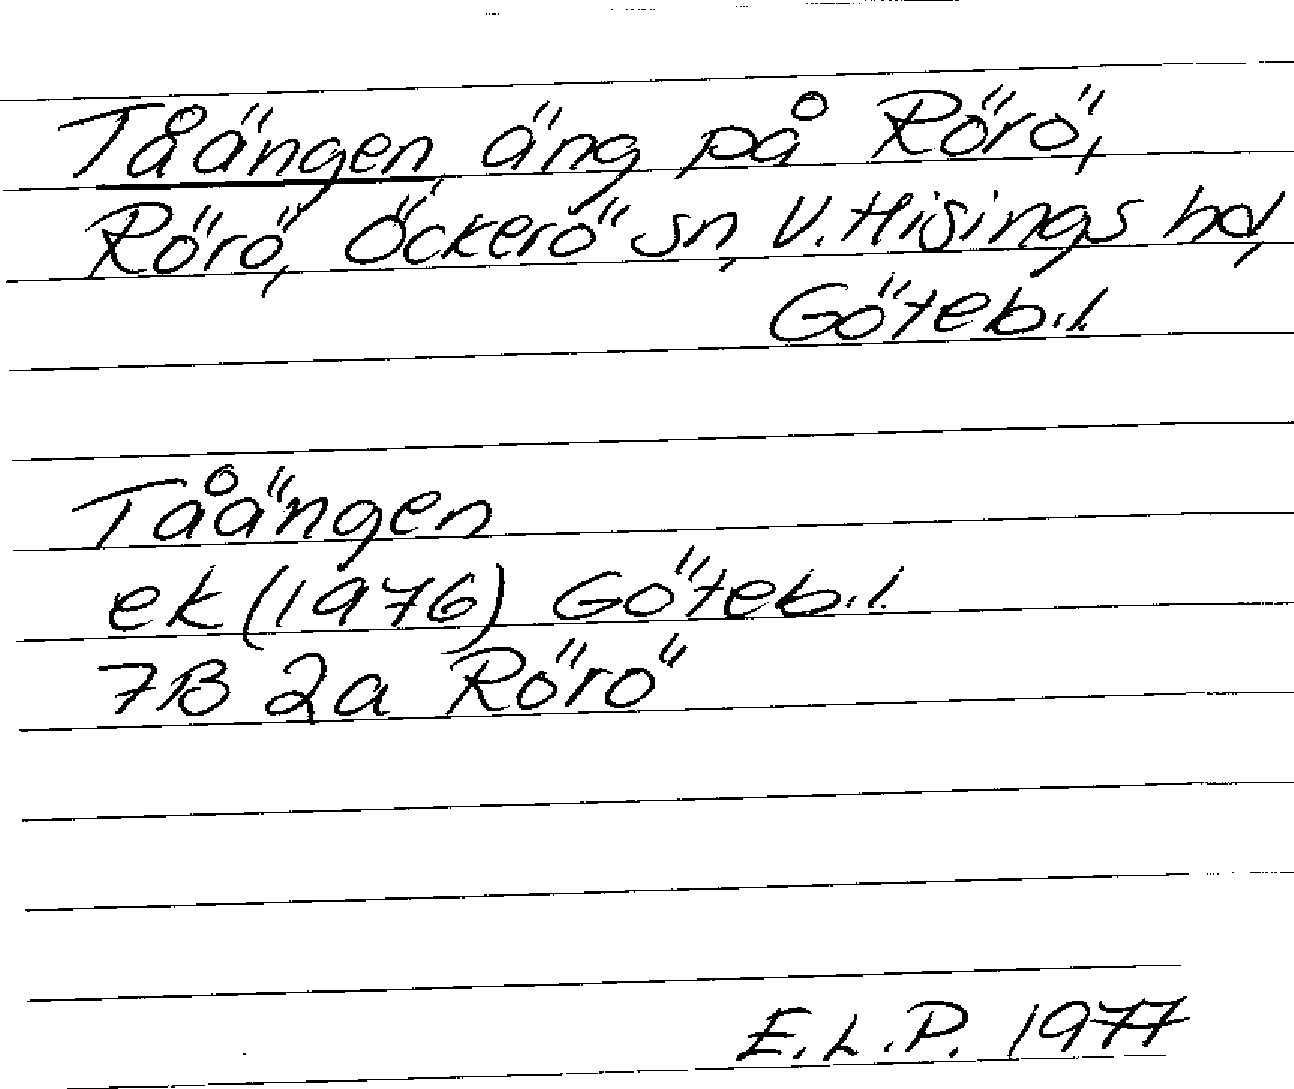 Tåängen, äng på Rörö,
Rörö, Öckerö sn, V. Hisings hd,
Göteb. l.
Tåängen
ek (1976) Göteb. l.
7B 2a Rörö
E. L. P. 1977